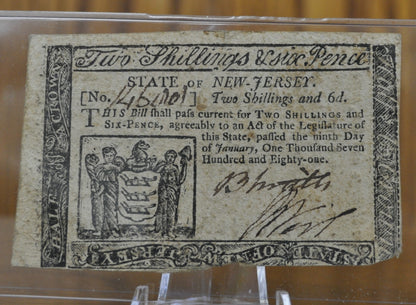 Two Shillings & six Pence
STATE OF NEW-JERSEY.
[No. ] Two Shillings and 6d.
THIS Bill shall pass current for TWO SHILLINGS and
SIX-PENCE, agreeably to an Act of the Legislature of
this State, passed the ninth Day
of January, One Thousand Seven
Hundred and Eighty-one.
HALF
STATE OF NEW
JERSEY